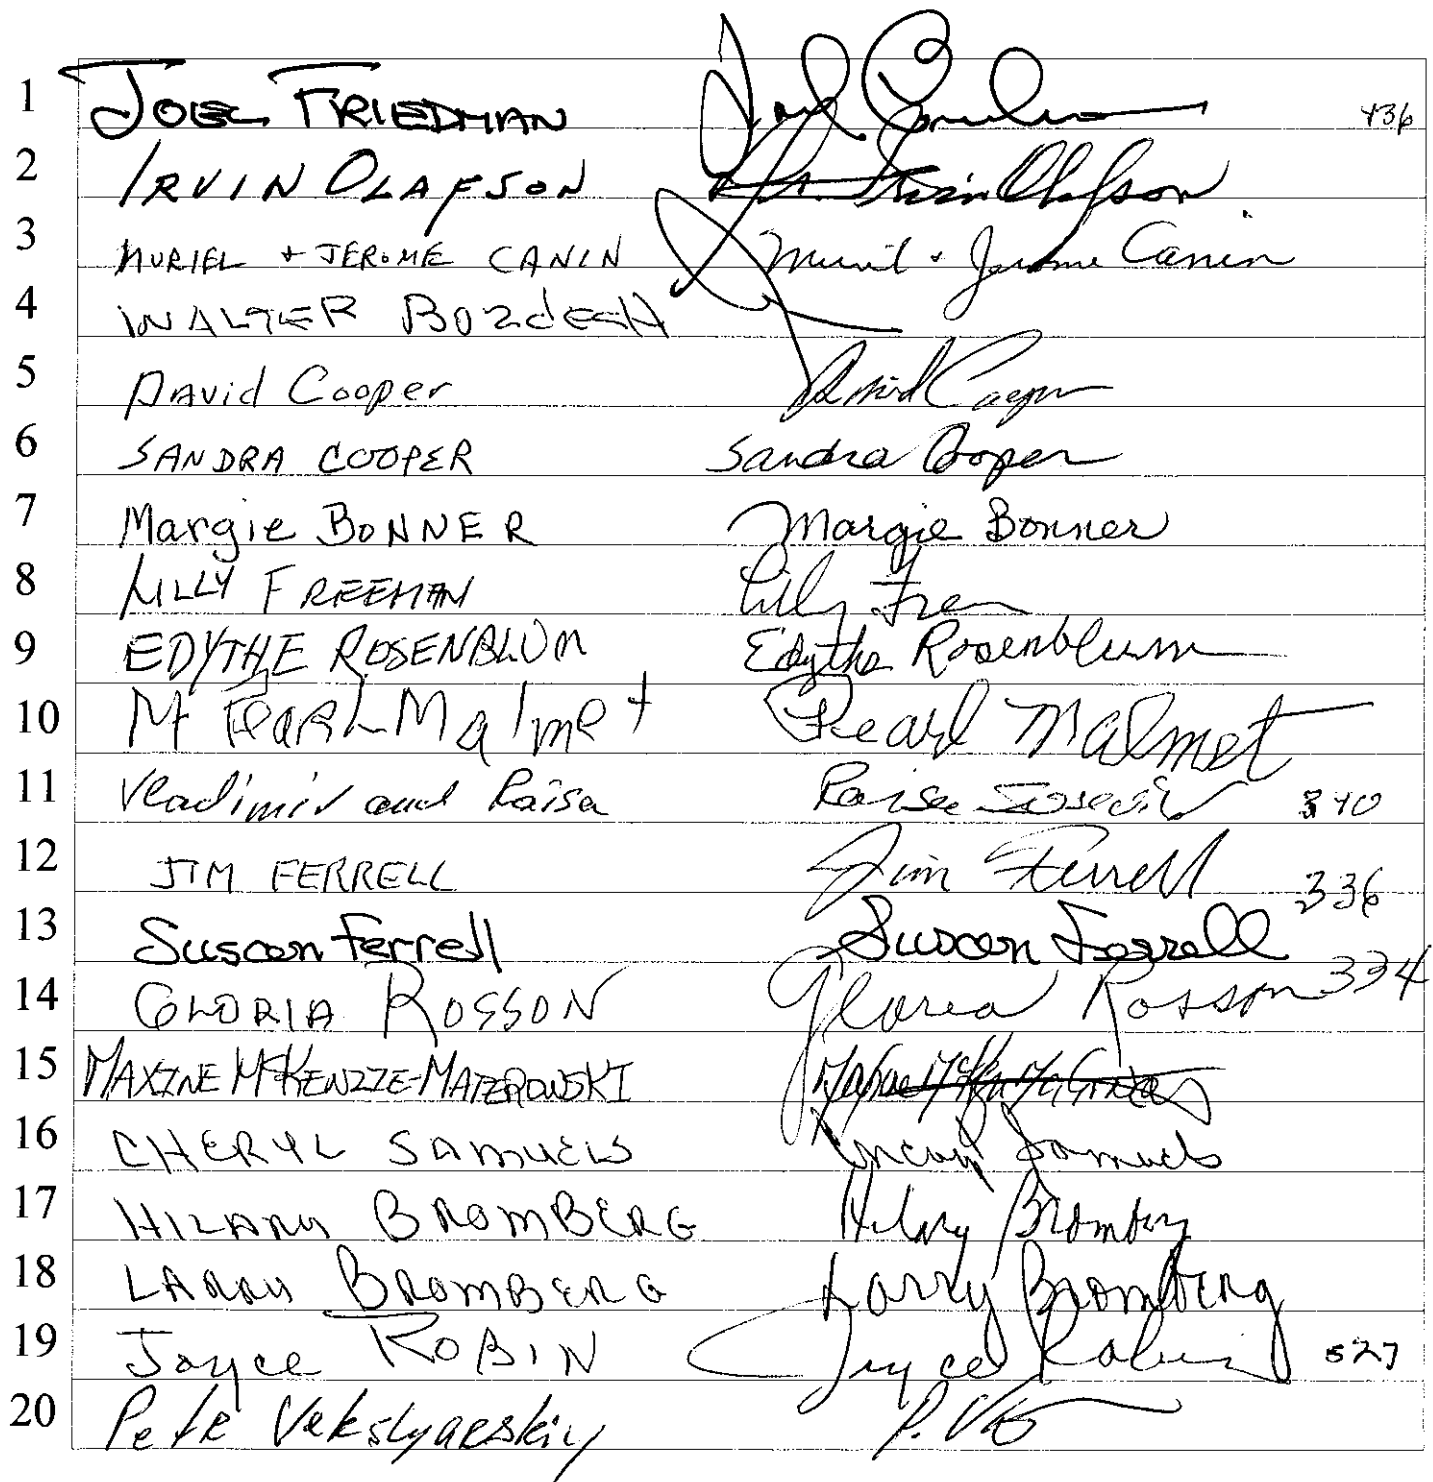 1 JOEL FRIEDMAN 436
2 IRVIN OLAFSON Irvin Olafson
3 MURIEL + JEROME CANIN Muriel + Jerome Canin
4 WALTER
5 DAvid Cooper David Cooper
6 SANDRA COOPER Sandra Cooper
7 Margie BONNER Margie Bonner
8 LILLY FREEMAN
9 EDYTHE ROSENBLUM Edythe Rosenblum
10 M PEARL Malmet Pearl Malmet
11 Vladimir and Raisa Raisa 340
12 JIM FERRELL Jim Ferrell 336
13 Suscan Ferrell Suscan Ferrell
14 GLORIA ROSSON Gloria Rosson 334
15 MAXINE McKENZIE-MATEROWSKI
16 CHERYL SAMUELS Samuels
17 HILARY BROMBERG Hilary Bromberg
18 LARRY BROMBERG Larry Bromberg
19 Joyce ROBIN Joyce Robin 527
20 Pete